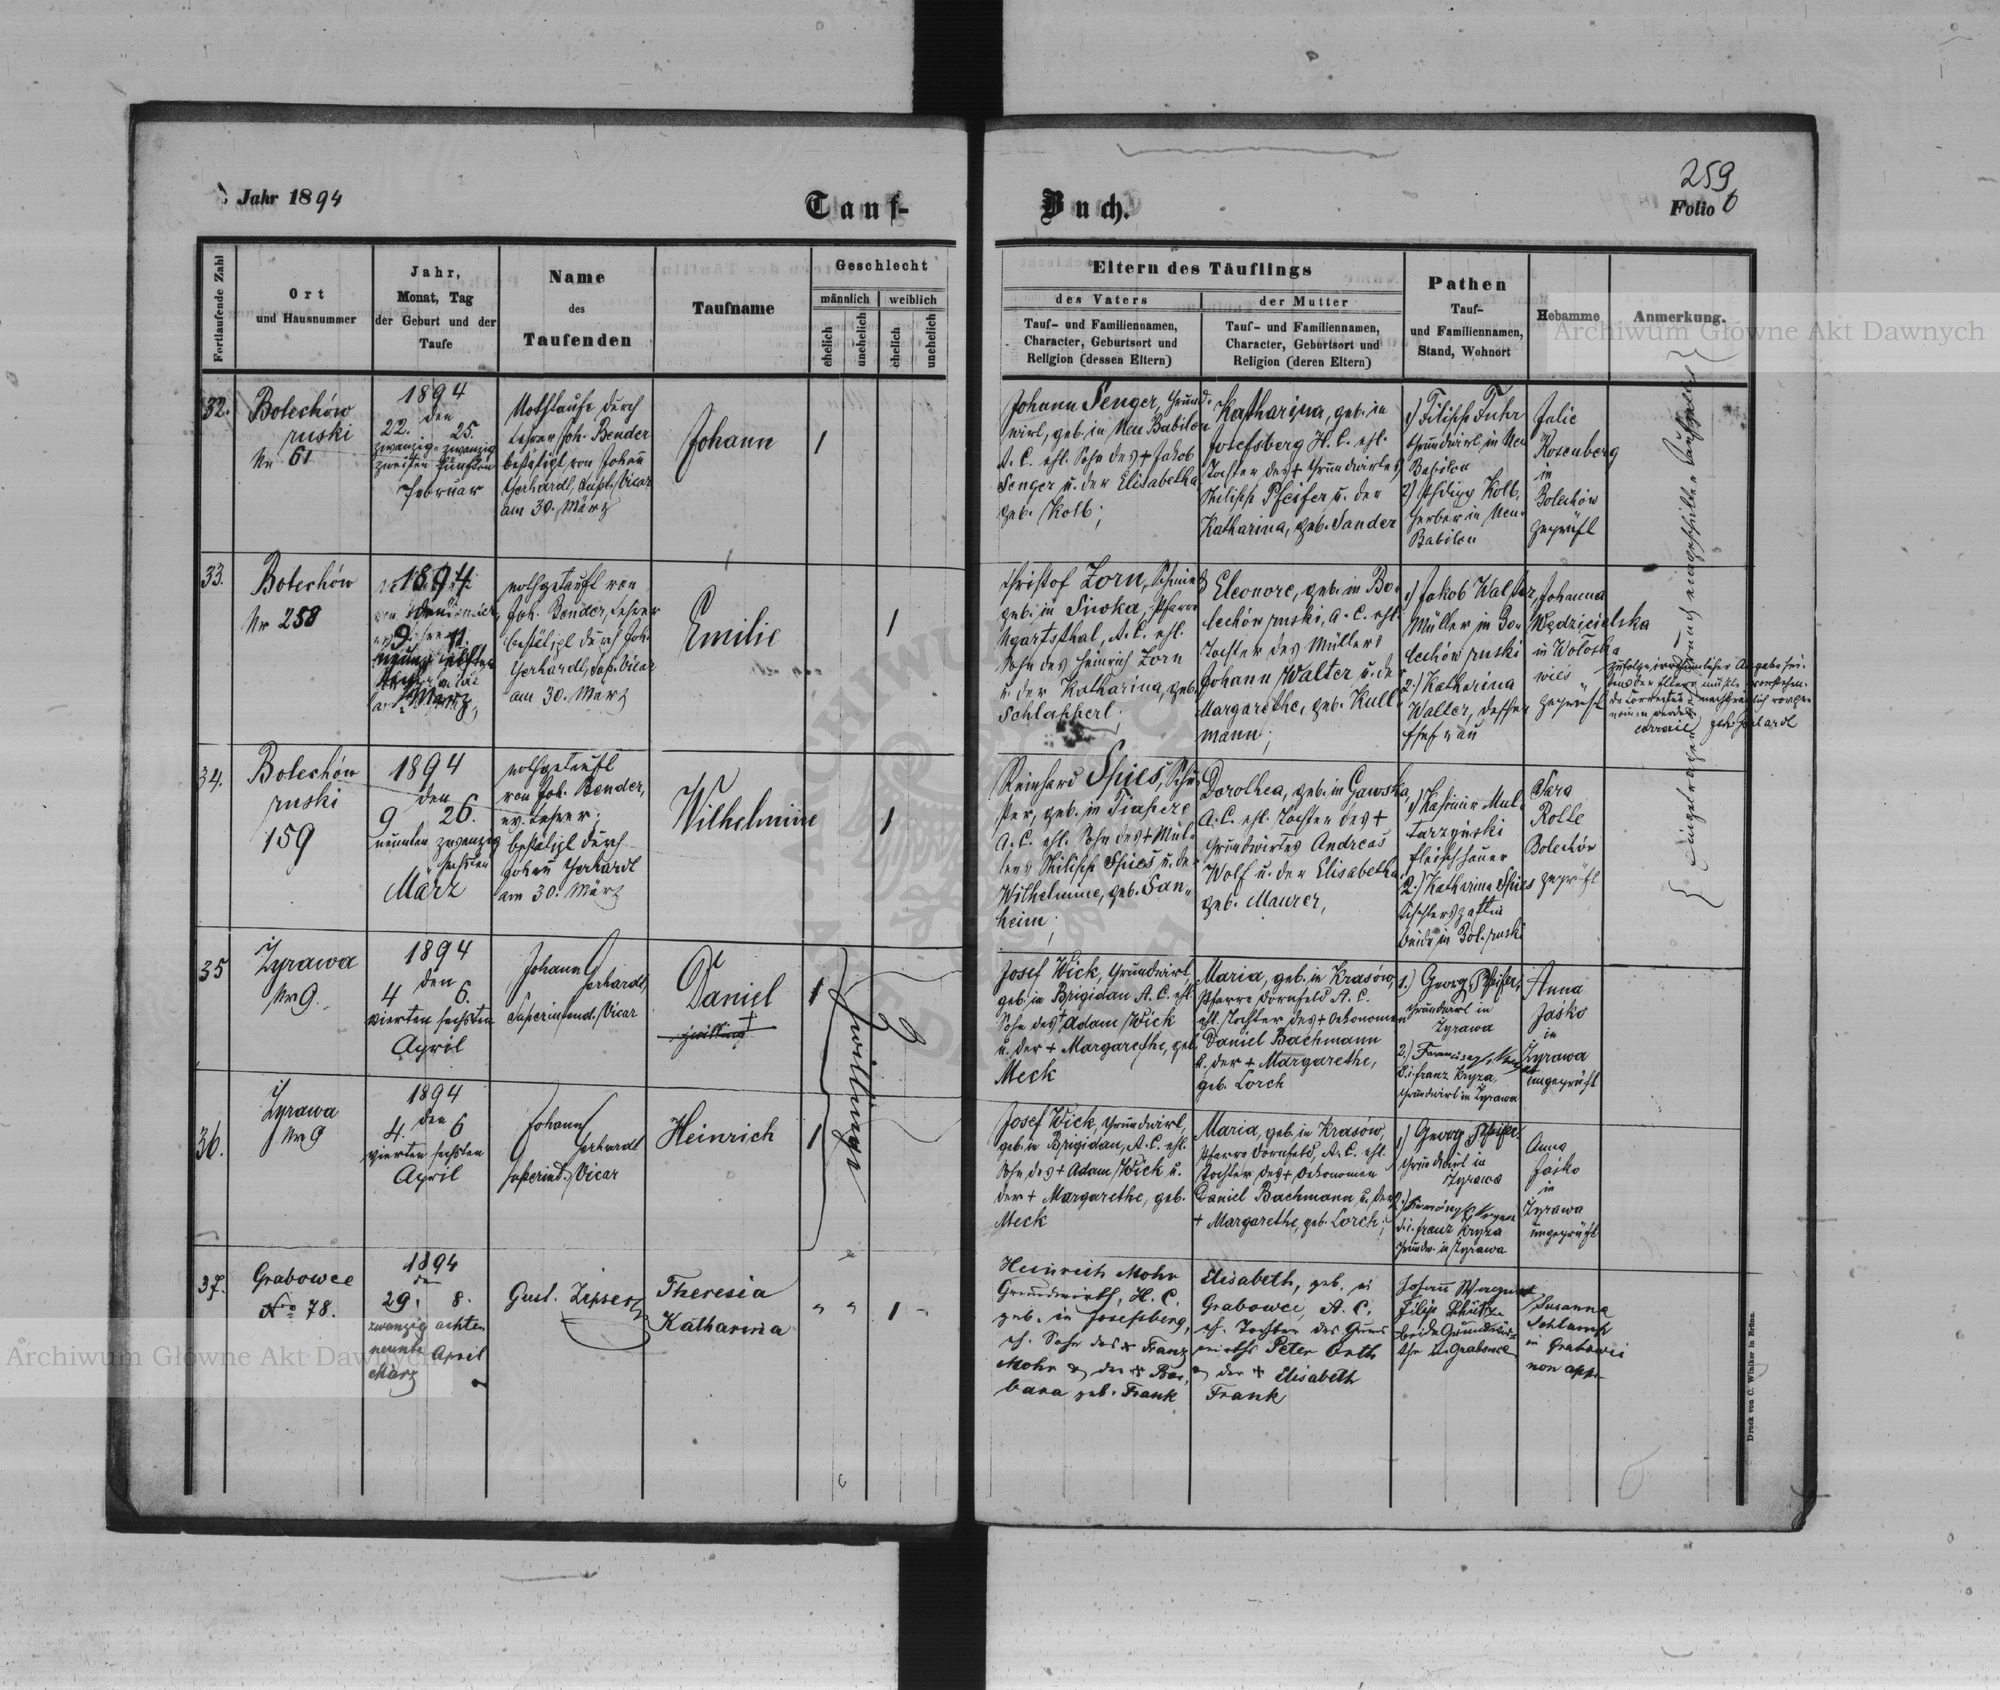 Jahr 1894
Tauf-
Buch.
259
Folio 6
Fortlaufende Zahl
Ort
und Hausnummer
Jahr,
Monat, Tag
der Geburt und der
Taufe
Name
des
Taufenden
Taufname
Geschlecht
männlich
weiblich
ehelich
unehelich
ehelich
unehelich
Eltern des Täuflings
des Vaters
der Mutter
Tauf- und Familiennamen,
Character, Geburtsort und
Religion (dessen Eltern)
Tauf- und Familiennamen,
Character, Geburtsort und
Religion (deren Eltern)
Pathen
Tauf-
und Familiennamen,
Stand, Wohnort
Hebamme
Anmerkung.
Archiwum Główne Akt Dawnych
32.
Bolechów
ruski
Nr 61
1894
den
22. 25.
zwanzig zwanzig
zweiten fünften
Februar
Nothtaufe durch
Lehrer Joh. Bender
bestätigt von Johann
Gerhardt, Supt. Vicar
am 30. März
Johann
1
Johann Senger, Grund-
wirt, geb. in Neu Babilon
A. C. ehl. Sohn des + Jakob
Senger u. der Elisabetha
geb. Kolb;
Katharina, geb. in
Josefsberg H. C. ehl.
Tochter des + Grundwirtes
Philipp Pfeifer u. der
Katharina, geb. Sander
1) Filipp Fuhr
Grundwirt in Neu
Babilon
2) Kolb,
Gerber in Neu-
Babilon
Julie
Rosenberg
in
Bolechów
geprüft
33.
Bolechów
Nr 258
1894
den
9. 11.
März
nothgetauft von
Joh. Bender, Lehrer
bestätigt durch Joh.
Gerhardt, Sup. Vicar
am 30. März
Emilie
1
Christof Zorn, Schmied
geb. in Siwka, Pfarre
Ugartsthal, A. C. ehl.
Sohn des Heinrich Zorn
u. der Katharina, geb.
Schlapperl;
Eleonore, geb. in Bo-
lechów ruski, A. C. ehl.
Tochter des Müllers
Johann Walter u. der
Margarethe, geb. Kull-
mann;
1) Jakob Walter,
Müller in Bo-
lechów ruski
2.) Katharina
Walter, dessen
Ehefrau
Johanna
Wędzicielska
in Wołoska
wies
geprüft
zufolge irrthümlicher Angabe sei-
tens der Eltern mußte vorstehen-
de Correctur nachträglich vorge-
nommen werden
Gerhardt
34.
Bolechów
ruski
159
1894
den
9 26.
neunten zwanzig
sechsten
März
nothgetauft
von Joh. Bender,
ev. Lehrer;
bestätigt durch
Johann Gerhardt
am 30. März
Wilhelmine
1
Reinhard Spies, Schu-
ster, geb. in
A. C. ehl. Sohn des + Mül-
lers Philipp Spies u. der
Wilhelmine, geb. San-
heim;
Dorothea, geb. in Gawska,
A. C. ehl. Tochter des +
Grundwirtes Andreas
Wolf u. der Elisabetha,
geb. Maurer,
1) Kasimir Mul-
tarzyński
Fleischhauer
2.) Katharina Spies
Tischlersgattin
beide in Bol. ruski
Sara
Rolle
Bolechów
geprüft
35
Zyrawa
Nr 9.
1894
den
4 6.
vierten sechsten
April
Johann
Gerhardt,
Superintend. Vicar
Daniel
1
Zwillinge
Josef Wick, Grundwirt,
geb. in Brigidau A. C. ehl.
Sohn des + Adam Wick
u. der + Margarethe, geb.
Meck
Maria, geb. in Krasów,
Pfarre Dornfeld A. C.
ehl. Tochter des + Oekonomen
Daniel Bachmann
u. der + Margarethe,
geb. Lorch
1.) Georg Pfeifer,
Grundwirt in
Zyrawa
d. i. Franz Kryza,
Grundwirt in Zyrawa
Anna
Jaśko
in
Zyrawa
ungeprüft
36.
Zyrawa
Nr 9
1894
den
4. 6
vierten sechsten
April
Johann
Gerhardt
Superint. Vicar
Heinrich
1
Josef Wick, Grundwirt,
geb. in Brigidau, A. C. ehl.
Sohn des + Adam Wick u.
der + Margarethe, geb.
Meck
Maria, geb. in Krasów,
Pfarre Dornfeld, A. C. ehl.
Tochter des + Oekonomen
Daniel Bachmann u. der
+ Margarethe, geb. Lorch;
1) Georg Pfeifer
Grundwirt in
Zyrawa
d. i. Franz Kryza
Grundw. in Zyrawa
Anna
Jaśko
in
Zyrawa
ungeprüft
37.
Grabowce
Nro 78.
1894
den
29. 8.
zwanzig achten
neunte April
März
Gust. Zipser
Theresia
Katharina
" " 1 "
Heinrich Mohr
Grundwirth, H. C.
geb. in Josefsberg,
eh. Sohn des + Franz
Mohr & der + Bar-
bara geb. Frank
Elisabeth, geb. in
Grabowce, A. C.
eh. Tochter des Grund-
wirths Peter Orth
& der + Elisabeth
Frank
Johann Wagner
Filip Schütz
beide Grundwir-
the in Grabowce
Susanna
Schlamp
in Grabowce
non app.
Druck von C. Winiker in Brünn.
Archiwum Główne Akt Dawnych